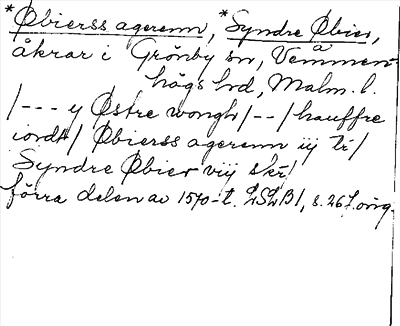 *Øbierss agerenn, *Syndre Øbier,
åkrar i Grönby sn, Vemmen-
högs hd, Malm. l.
/--- y Østre wongh/--/hauffre
iordt/ Øbierss agerenn iij tr/
Syndre Øbier viij skr/
förra delen av 1570-t. LSLB1, s. 267. orig.